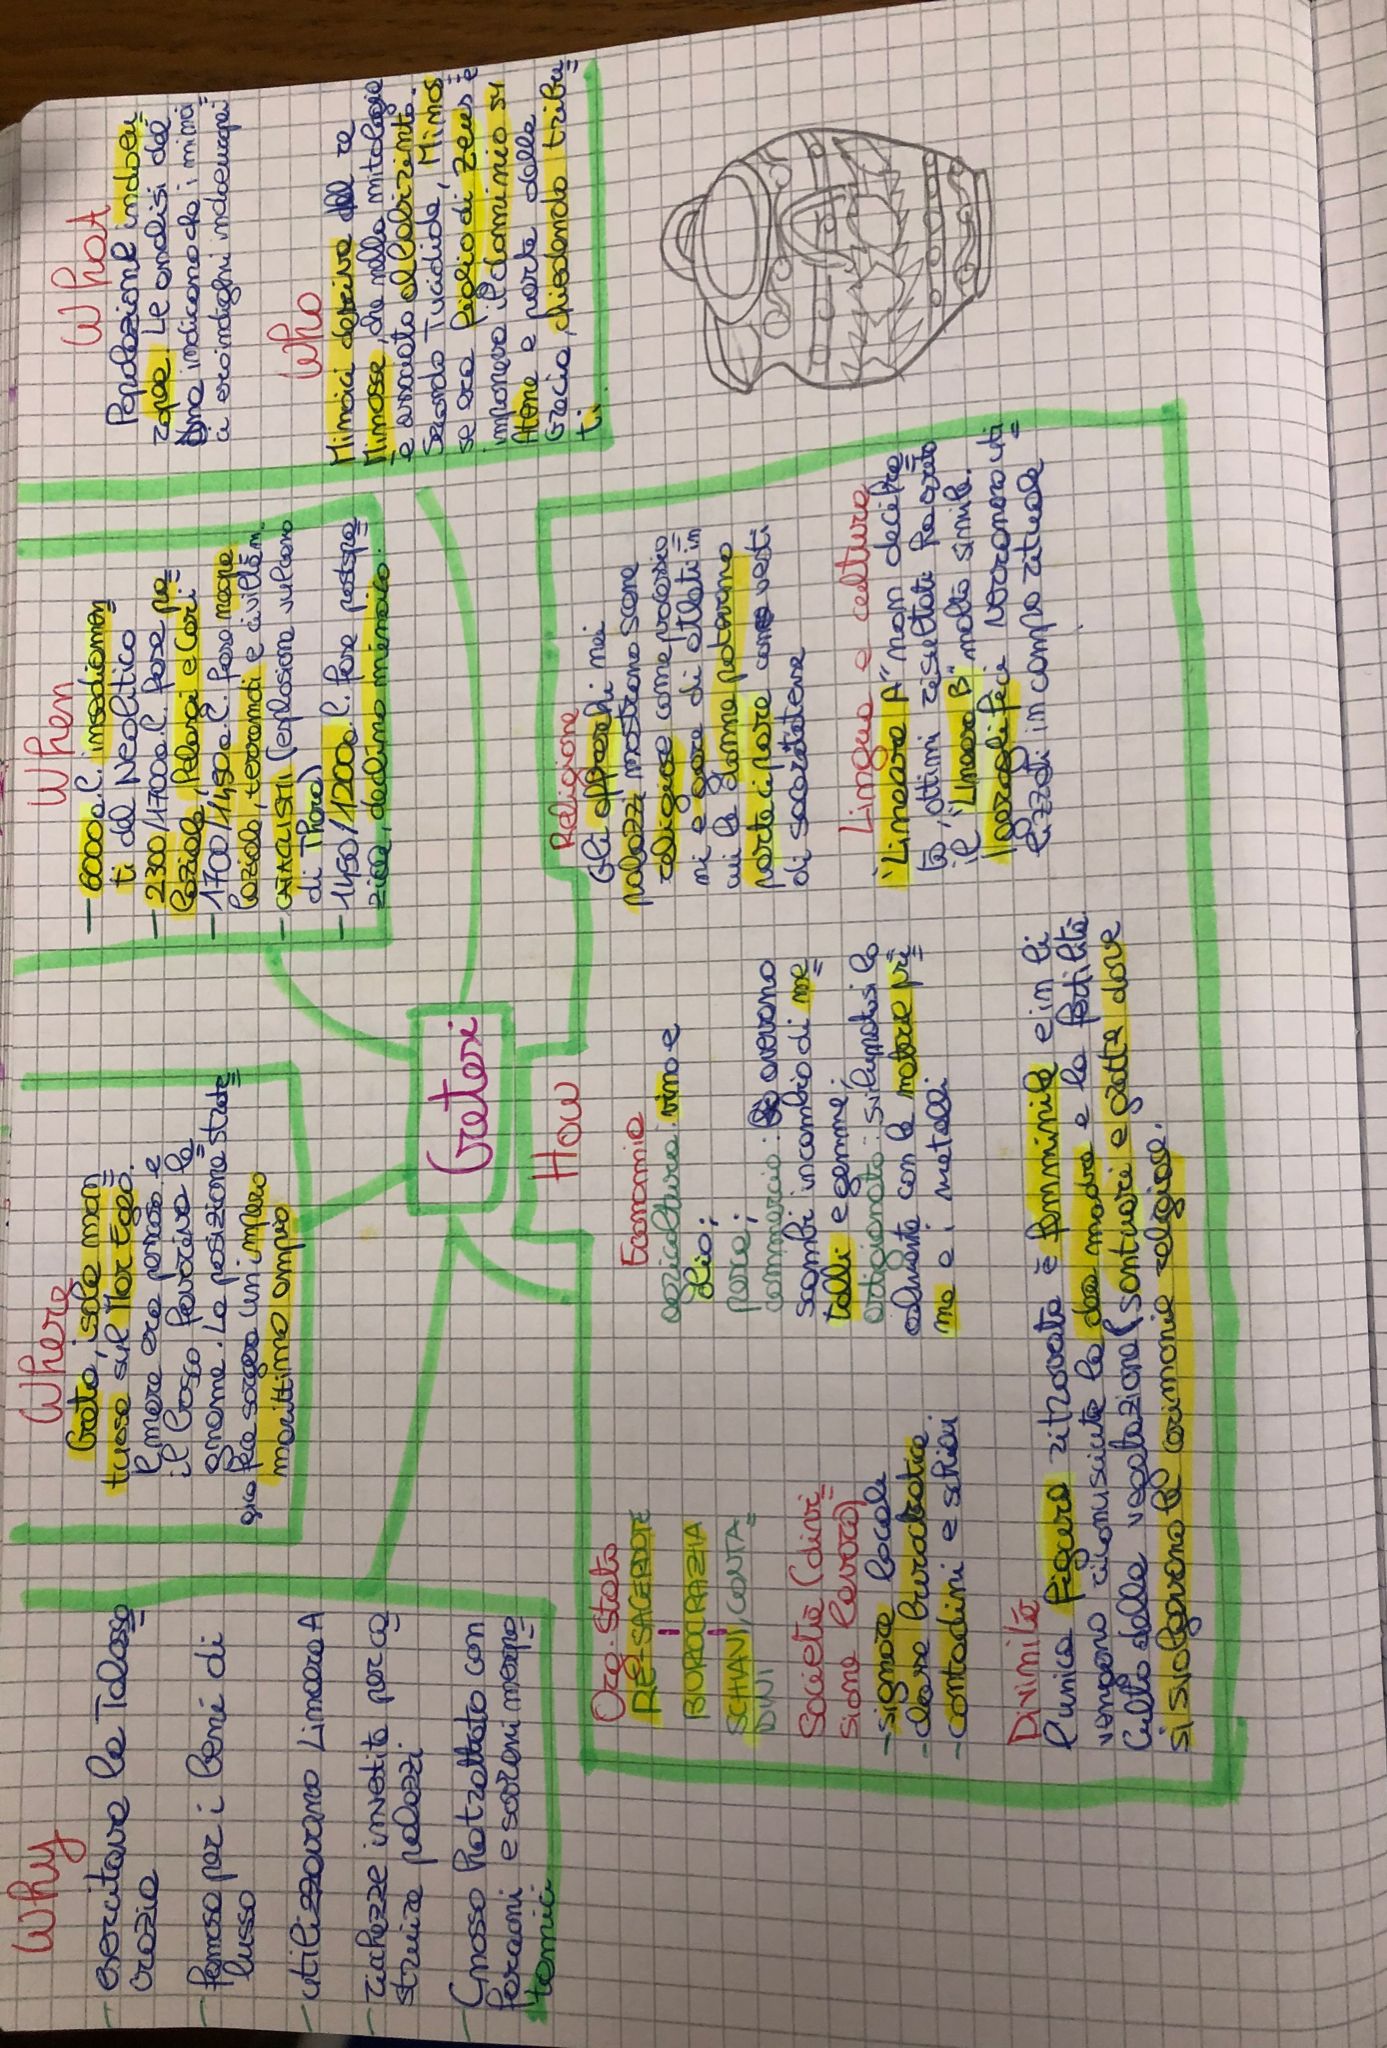 Why
- esercitava la Talasso
crazia
- famosa per i beni di
lusso
- utilizzavano Lineare A
- ricchezze investite per co
struire palazzi
- Cnosso ha trattato con
faraoni e sovrani mesopo
tamici
Where
Creta, isola mon
tuosa sul Mar Egeo.
Il mare era pescoso e
il bosco forniva le
gname. La posizione strate
gica fece sorgere un impero
marittimo ampio
When
- 6000 a.C. insediamen
ti del Neolitico
- 2300/1700 a.C. fase pa
laziale, Palazzi e Cori
- 1700/1450 a.C. fase neopa
laziale, terremoti e civiltà m.
- CATACLISMI (esplosione vulcano
di Thera)
- 1450/1200 a.C. fase postpa
ziale, declino minoico.
What
Popolazione indoeu
ropea. Le analisi del
Dna indicano che i minoi
ci erano indigeni indoeuropei
Who
Minoici deriva da re
Minosse, che nella mitologia
è associato al labirinto.
Secondo Tucidide, Minos
se era figlio di Zeus e
imponeva il dominio su
Atene e parte della
Grecia, chiedendo tribu
ti.
Cretesi
How
Org. Stato
RE-SACERDOTE
BUROCRAZIA
SCHIAVI, CONTA
DINI
Società (divi
sione lavoro)
- signore locale
- classe burocratica
- contadini e schiavi
Economia
agricoltura: vino e
olio;
pesca;
commercio: avevano
scambi in cambio di me
talli e gemme;
artigianato: sviluppatosi lo
calmente con le materie pri
me e i metalli
Divinità
L'unica figura ritrovata è femminile e in lei
vengono riconosciute la dea madre e la fertilità
Culto della vegetazione (santuari e grotte dove
si svolgevano le cerimonie religiose.
Religione
Gli affreschi nei
palazzi mostrano scene
religiose come processio
ni e gare di atleti in
cui le donne potevano
partecipare con vesti
di sacerdotesse
Lingua e cultura
"Lineare A" non decifra
to, ottimi risultati ha avuto
il "Lineare B" molto simile.
I geroglifici verranno uti
lizzati in campo rituale